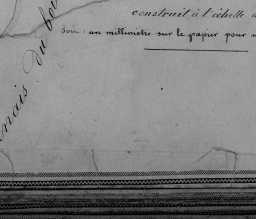 construit à l'échelle
Soit : un millimètre sur le papier pour
du